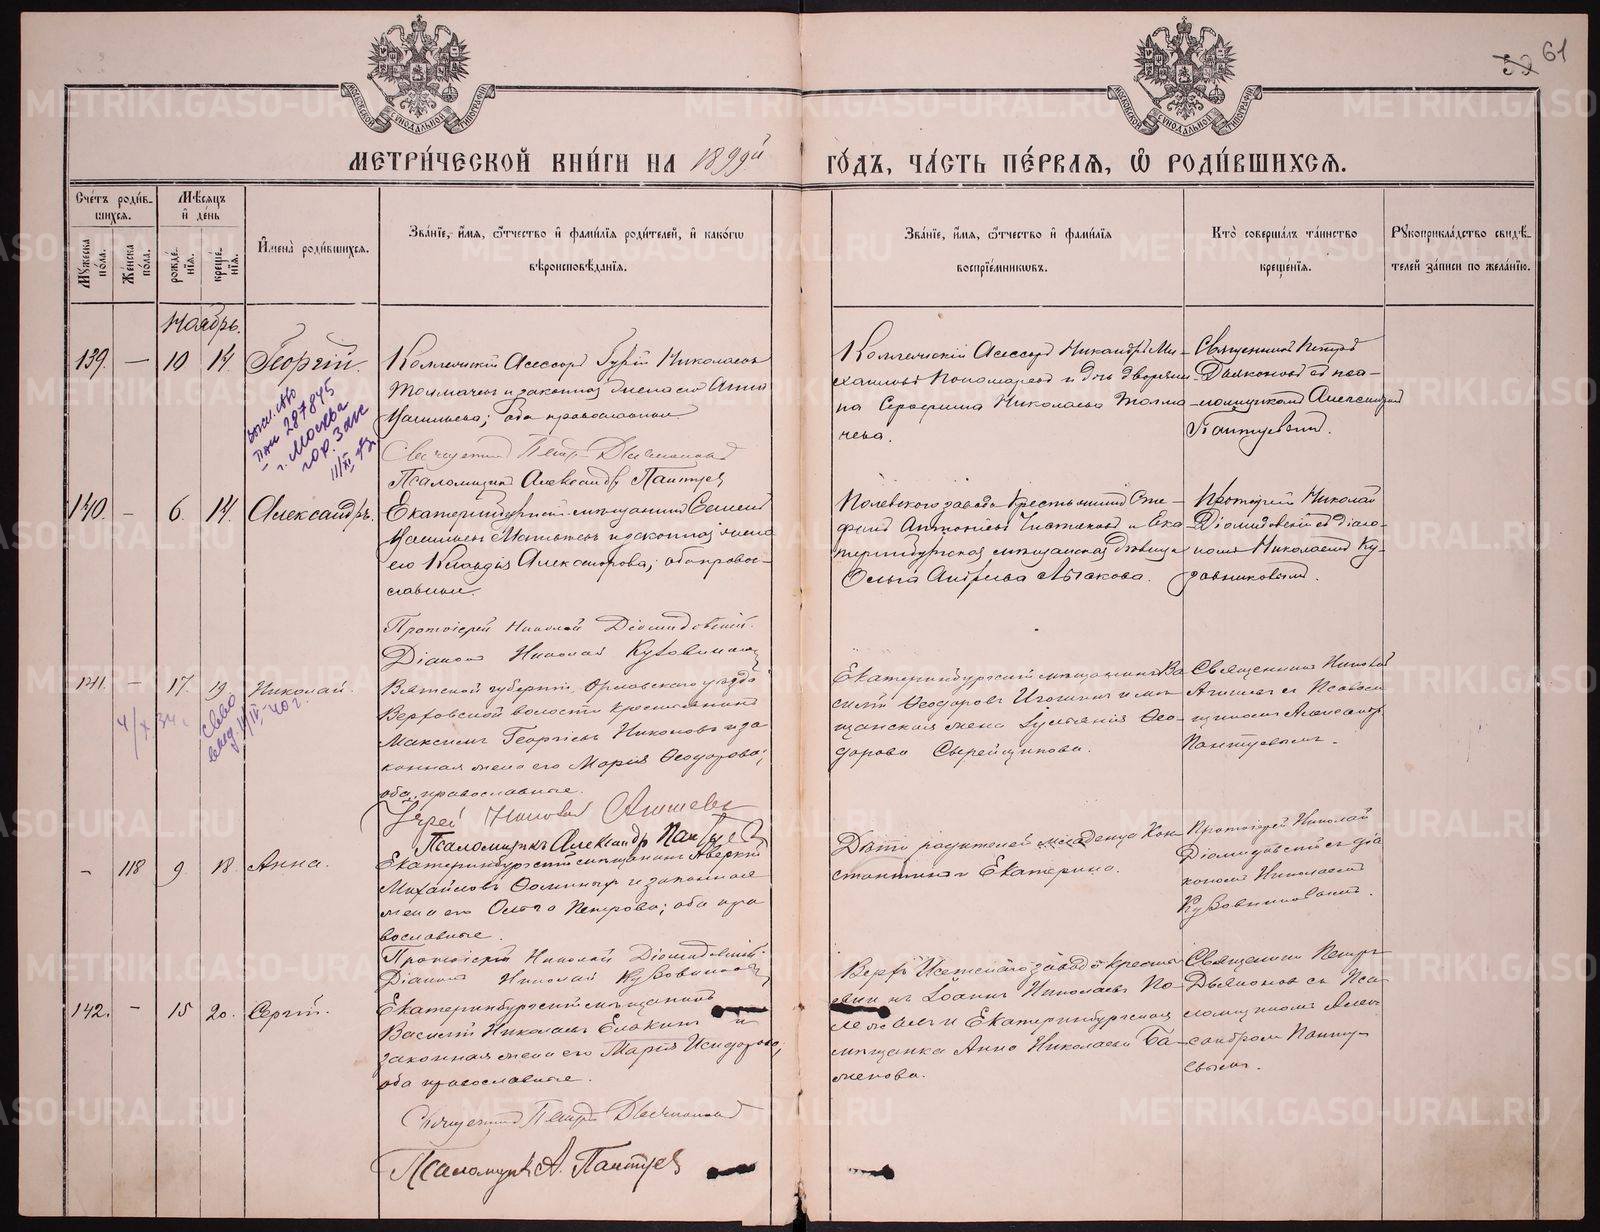 61
МЕТРИ́ЧЕСКОЙ КНИ́ГИ НА 1899й ГО́ДЪ, ЧА́СТЬ ПЕ́РВАЯ, Ѡ РОДИ́ВШИХСЯ.
Сче́тъ роди́вшихся.
Мѣ́сяцъ и де́нь
Мꙋжеска по́ла.
Же́нска по́ла.
рожде́нїя.
креще́нїя.
Имена̀ роди́вшихся.
Зва́нїе, и́мя, ѻ҆́тчество и фами́лїя роди́телей, и како́гѡ
вѣроисповѣ́данїя.
Зва́нїе, и́мя, ѻ҆́тчество и фами́лїя
воспрїе́мниковъ.
Кто̀ соверша́лъ та́инство
креще́нїя.
Рꙋкоприкла́дство свидѣ́-
телей за́писи по жела́нїю.
Ноябрь.
139. — 10 14 Георгій.
Коллежскій Асессоръ Гурій Николаевъ
Толмачевъ и законная жена его Анна
Васильева; оба православные
Священникъ Петръ Дьяконовъ
Псаломщикъ Александръ Пантуев
Коллежскій Асессоръ Никандръ Ми-
хаиловъ Пономаревъ и дочь дворяни-
на Серафима Николаева Толма-
чева.
Священникъ Петръ
Дьяконовъ съ пса-
ломщикомъ Александромъ
Пантуевымъ.
287845
г. Москва
гор. Загс
140. — 6. 14. Александръ.
Екатеринбургскій мѣщанинъ Семенъ
Васильевъ и законная жена
его Клавдія Александрова; оба право-
славные.
Протоіерей Николай Діомидовскій.
Діаконъ Николай Кузовников
Полевскаго завода крестьянинъ Сте-
фанъ Антоніевъ и Ека-
теринбургская мѣщанская дѣвица
Ольга Андреева.
Протоіерей Николай
Діомидовскій съ діако-
номъ Николаемъ Ку-
зовниковымъ.
141. — 17. 19 Николай.
4/X 34 г.
Вятской губерніи, Орловскаго уѣзда
Верховской волости крестьянинъ
Максимъ Георгіевъ Никоновъ и за-
конная жена его Марія Ѳеодорова;
оба православные.
Іерей Николай
Псаломщикъ Александр Пантуев
Екатеринбургскій мѣщанинъ Ва-
силій Ѳеодоровъ и мѣ-
щанская жена Ѳео-
дорова Сырейщикова.
Священникъ Николай
съ Псалом-
щикомъ Александр
Пантуевымъ.
- 118 9 18. Анна.
Екатеринбургскій мѣщанинъ Аверкій
Михайловъ и законная
жена его Ольга Петрова; оба пра
вославные.
Протоіерей Николай Діомидовскій.
Діаконъ Николай Кузовников
Дѣти родителей младенца Кон-
стантинъ и Екатерина.
Протоіерей Николай
Діомидовскій съ діа
кономъ Николаемъ
Кузовниковымъ.
142. — 15 20. Сергій.
Екатеринбургскій мѣщанинъ
Василій Николаевъ Елакинъ и
законная жена его Марія Исидорова;
оба православные.
Священникъ Петръ Дьяконовъ
Псаломщикъ А. Пантуев
Верхъ Исетскаго завода крестья-
нинъ Іоаннъ Николаевъ По-
и Екатеринбургская
мѣщанка Анна Николаева Ба-
женова.
Священникъ Петръ
Дьяконовъ съ Пса-
ломщикомъ Алек
сандромъ Панту-
евымъ.
METRIKI.GASO-URAL.RU